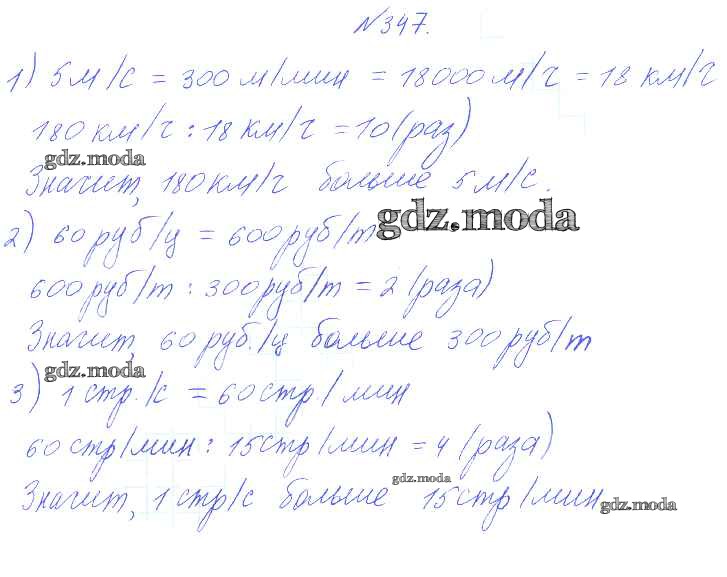 №347.
1) 5м/с = 300м/мин = 18000м/ч = 18 км/ч
180км/ч : 18 км/ч = 10(раз)
gdz.moda
Значит, 180км/ч больше 5м/с.
gdz.moda
2) 60руб/ц = 600руб/т
600руб/т : 300руб/т = 2 (раза)
Значит, 60руб./ц больше 300руб/т
gdz.moda
3) 1 стр./с = 60стр./мин
60стр/мин : 15стр/мин = 4 (раза)
gdz.moda
Значит, 1стр/с больше 15стр/мин
gdz.moda